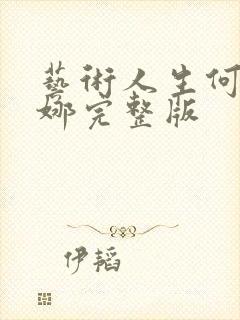 藝術人生何
娜完整版
伊韬